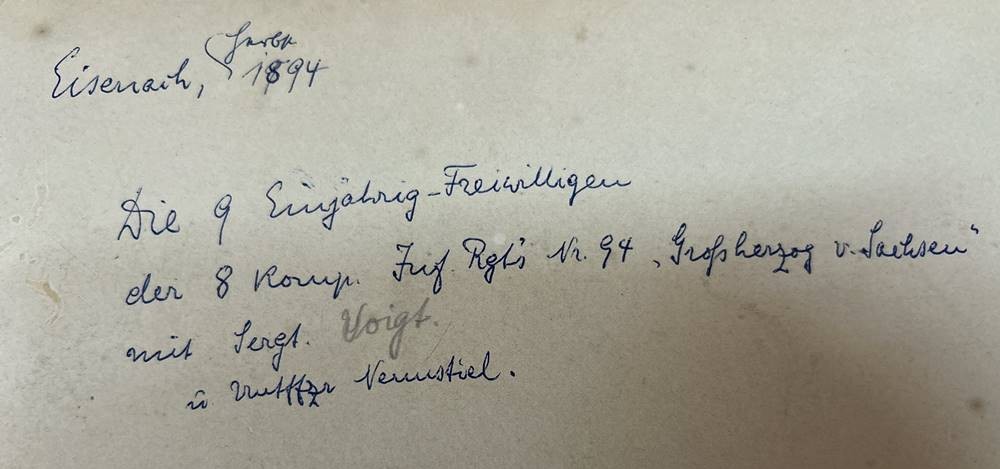 Herbst
Eisenach, 1894
Die 9 Einjährig-Freiwilligen
der 8 Komp. Inf. Rgt's Nr. 94 „Großherzog v. Sachsen"
mit Sergt. Voigt.
u Nennstiel.